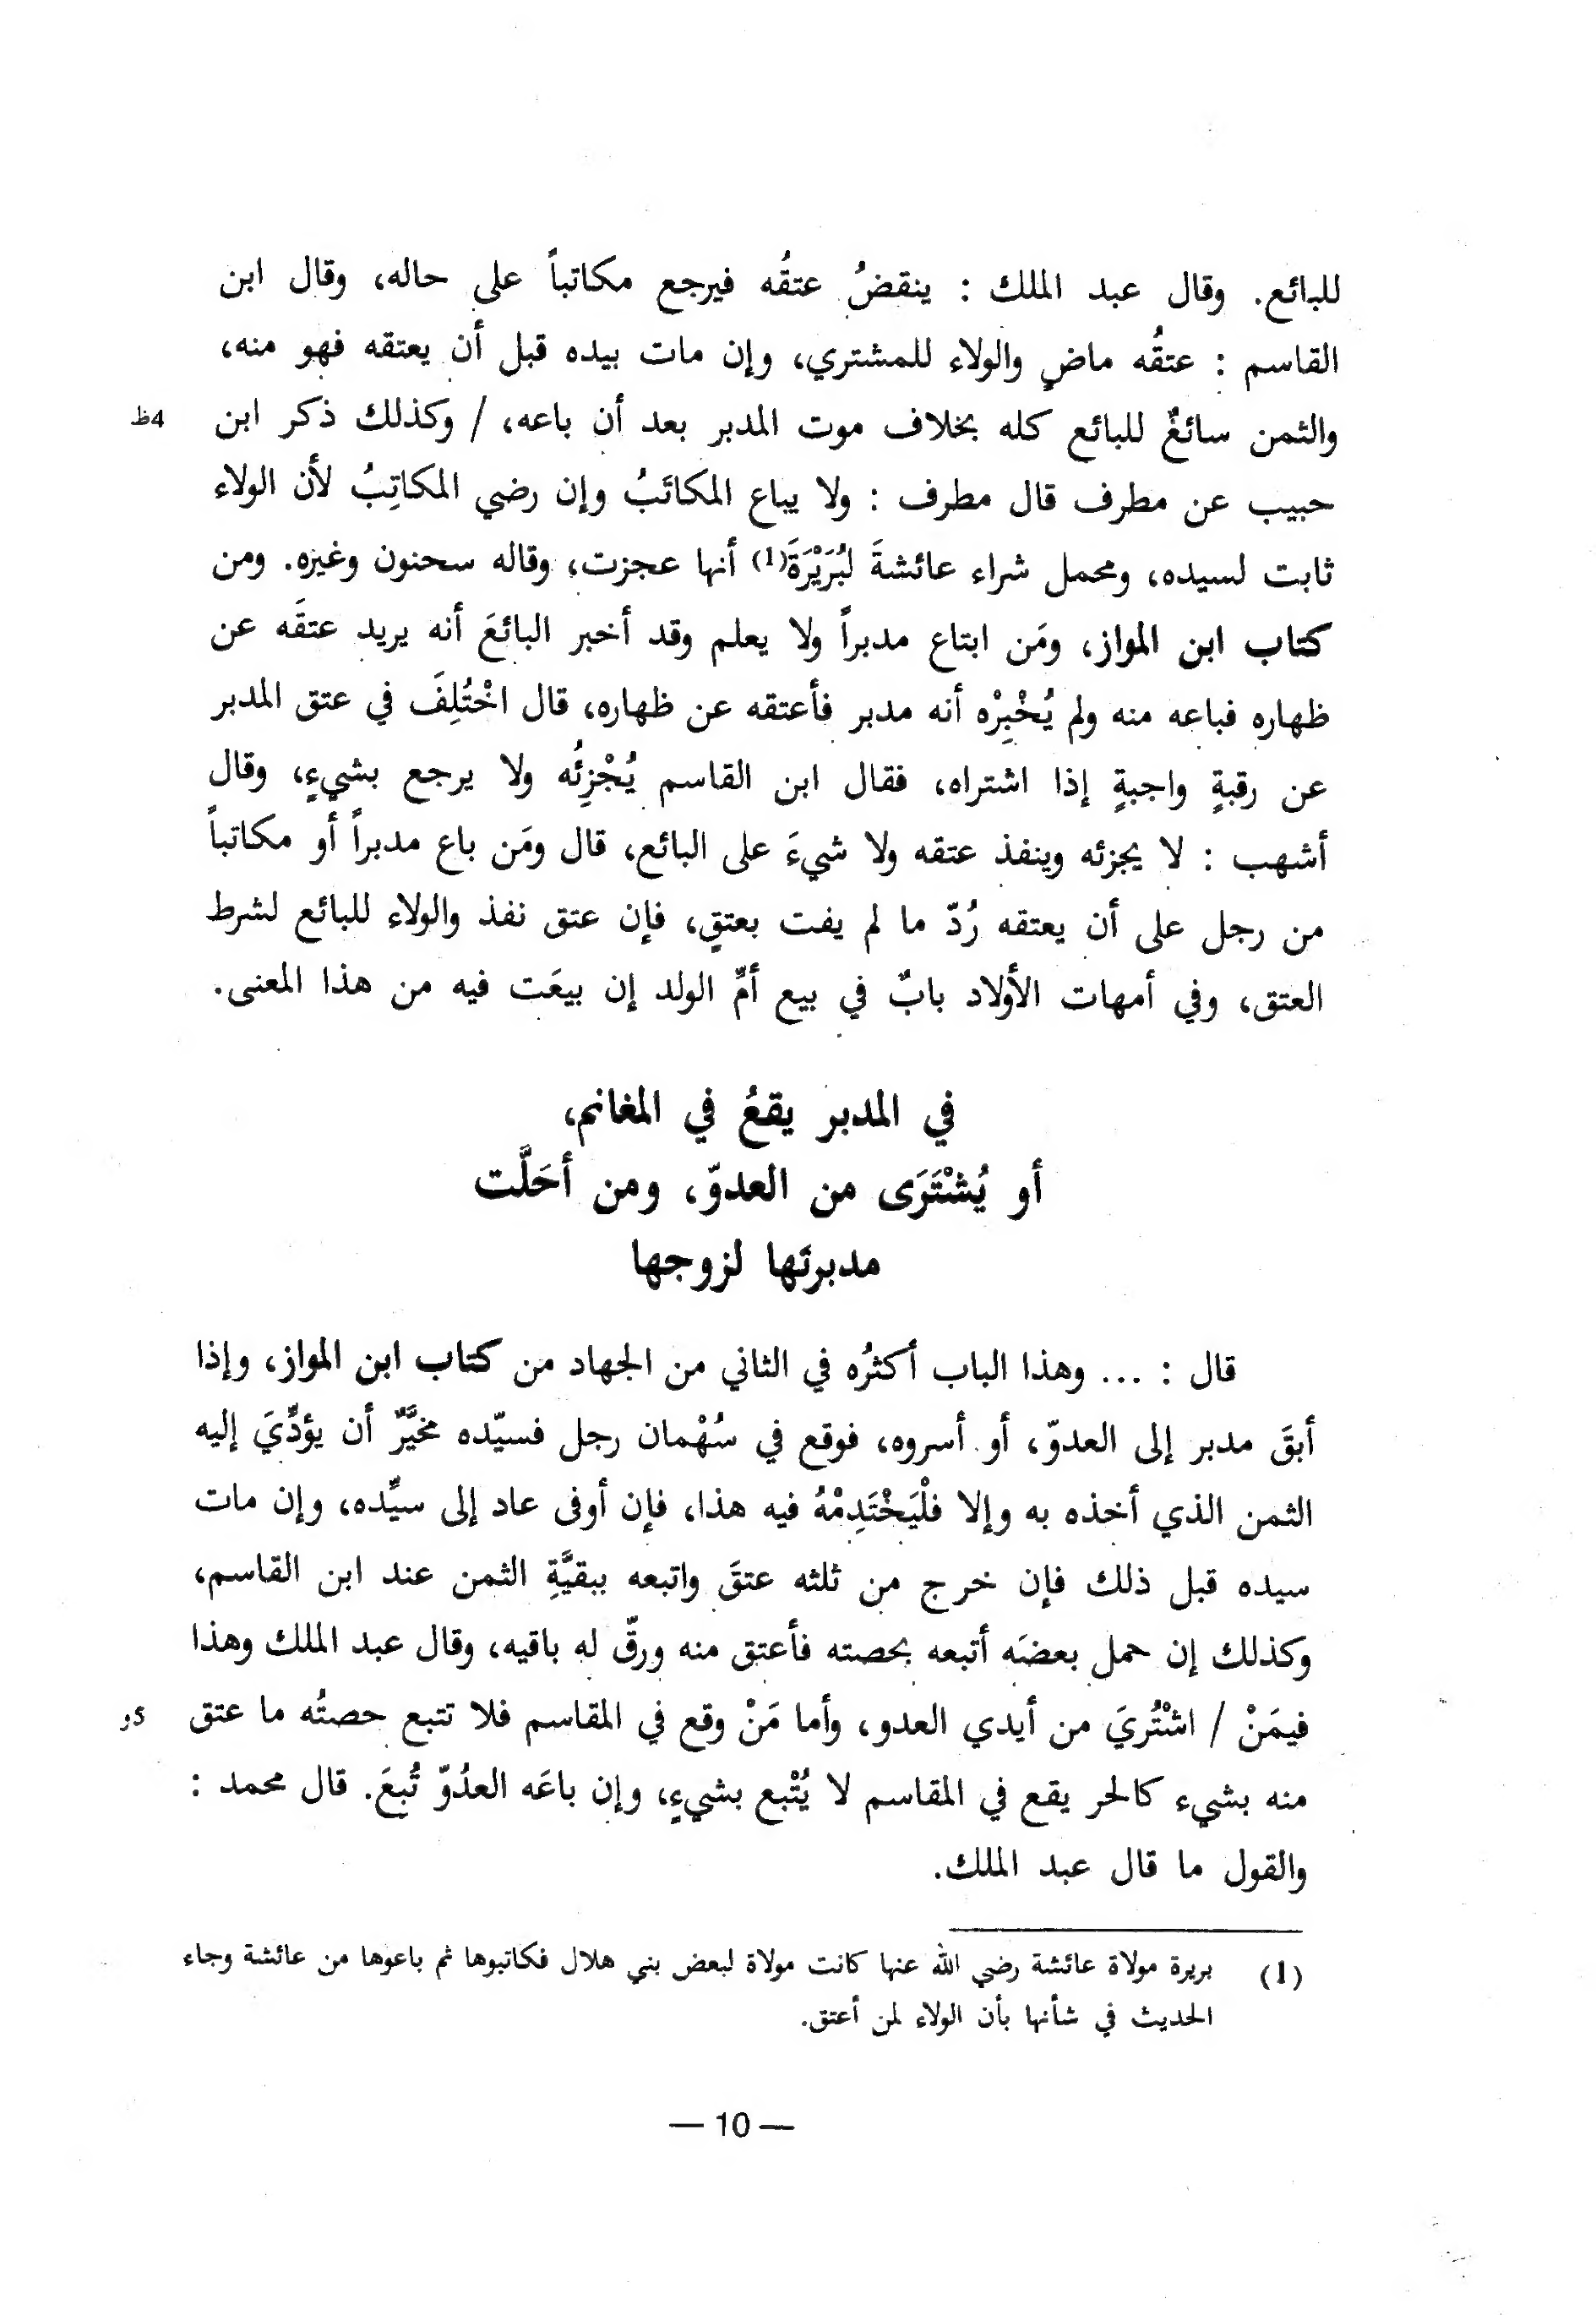 للبائع. وقال عبد الملك : ينقضُ عتقُه فيرجع مكاتباً على حاله، وقال ابن
القاسم : عتقُه ماضٍ والولاء للمشتري، وإن مات بيده قبل أن يعتقه فهو منه،
والثمن سائغٌ للبائع كله بخلاف موت المدبر بعد أن باعه، / وكذلك ذكر ابن 4ظ
حبيب عن مطرف قال مطرف : ولا يباع المكاتَبُ وإن رضي المكاتِبُ لأن الولاء
ثابت لسيده، ومحمل شراء عائشةَ لبُرَيْرَةَ(1) أنها عجزت، وقاله سحنون وغيره. ومن
كتاب ابن المواز، ومَن ابتاع مدبراً ولا يعلم وقد أخبر البائعَ أنه يريد عتقَه عن
ظهاره فباعه منه ولم يُخْبِرْه أنه مدبر فأعتقه عن ظهاره، قال اخْتُلِفَ في عتق المدبر
عن رقبةٍ واجبةٍ إذا اشتراه، فقال ابن القاسم يُجْزِئُه ولا يرجع بشيءٍ، وقال
أشهب : لا يجزئه وينفذ عتقه ولا شيءَ على البائع، قال ومَن باع مدبراً أو مكاتباً
من رجل على أن يعتقه رُدّ ما لم يفت بعتقٍ، فإن عتق نفذ والولاء للبائع لشرط
العتق، وفي أمهات الأولاد بابٌ في بيع أمِّ الولد إن بيعَت فيه من هذا المعنى.
في المدبر يقعُ في المغانم،
أو يُشْتَرَى من العدوّ، ومن أحَلَّت
مدبرتَها لزوجها
قال : ... وهذا الباب أكثرُه في الثاني من الجهاد من كتاب ابن المواز، وإذا
أبقَ مدبر إلى العدوّ، أو أسروه، فوقع في سُهْمان رجل فسيّده مخيَّرٌ أن يؤدِّيَ إليه
الثمن الذي أخذه به وإلا فلْيَخْتَدِمْهُ فيه هذا، فإن أوفى عاد إلى سيِّده، وإن مات
سيده قبل ذلك فإن خرج من ثلثه عتقَ واتبعه ببقيَّةِ الثمن عند ابن القاسم،
وكذلك إن حمل بعضَه أتبعه بحصته فأعتق منه ورقّ له باقيه، وقال عبد الملك وهذا
فيمَنْ / اشْتُريَ من أيدي العدو، وأما مَنْ وقع في المقاسم فلا تتبع حصتُه ما عتق 5و
منه بشيء كالحر يقع في المقاسم لا يُتْبع بشيءٍ، وإن باعَه العدُوّ تُبعَ. قال محمد :
والقول ما قال عبد الملك.
(1) بريرة مولاة عائشة رضي الله عنها كانت مولاة لبعض بني هلال فكاتبوها ثم باعوها من عائشة وجاء
الحديث في شأنها بأن الولاء لمن أعتق.
— 10 —